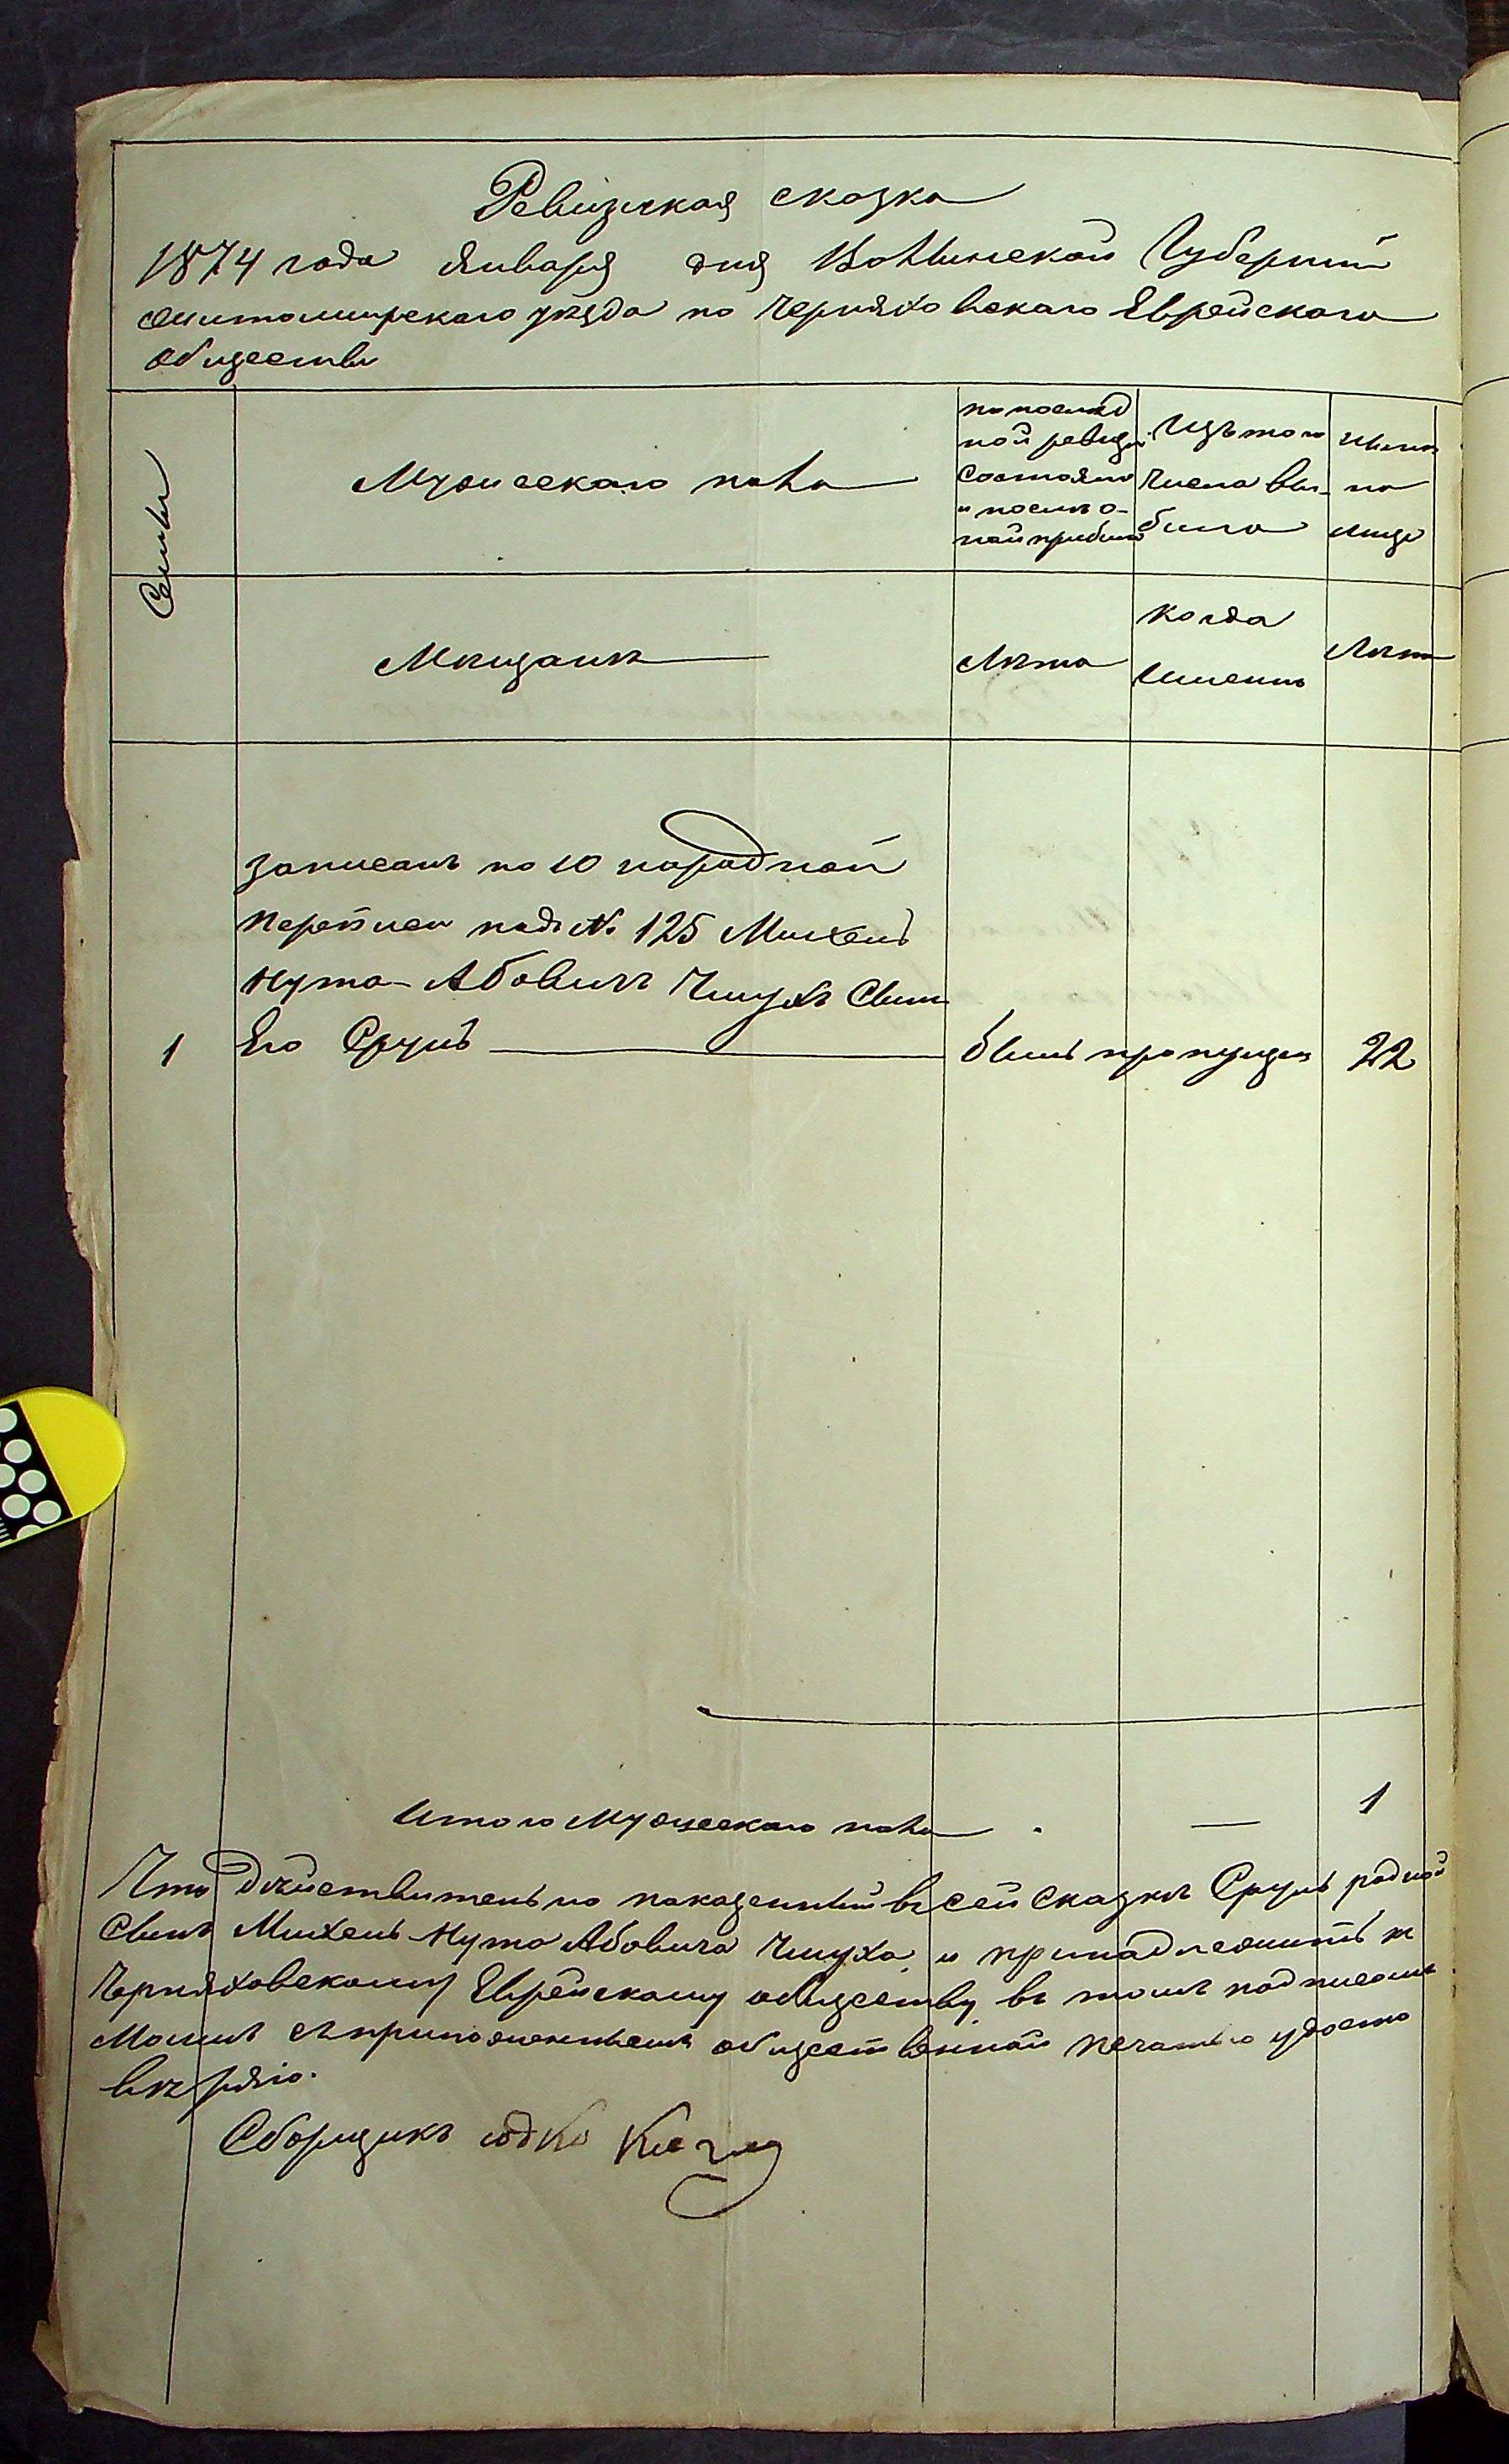 Ревизская сказка
1874 года Января дня Волынской Губернии
Житомирскаго уезда по Черняховскаго Еврейскаго
общества
Семьи
Мужескаго пола
по послед
ной ревизи
состояло
и после о-
ной прибыло
Изъ того
числа вы-
было
ныне
на
лицо
Мещане
Лета
когда
именно
Лета
записанъ по 10 народной
переписи подъ № 125 Михель
Нута-Абовичъ Чишухъ Сынъ
1 Его Сруль былъ пропущен 22
Итого Мужескаго пола — 1
Что действительно показанный въ сей сказке Сруль родной
Сынъ Михель Нута Абовича и принадлежитъ к
Черняховскому Еврейскому обществу в томъ подписомъ
Моимъ съ приложениемъ общественной печатью удосто
веряю.
Сборщикъ Юдко